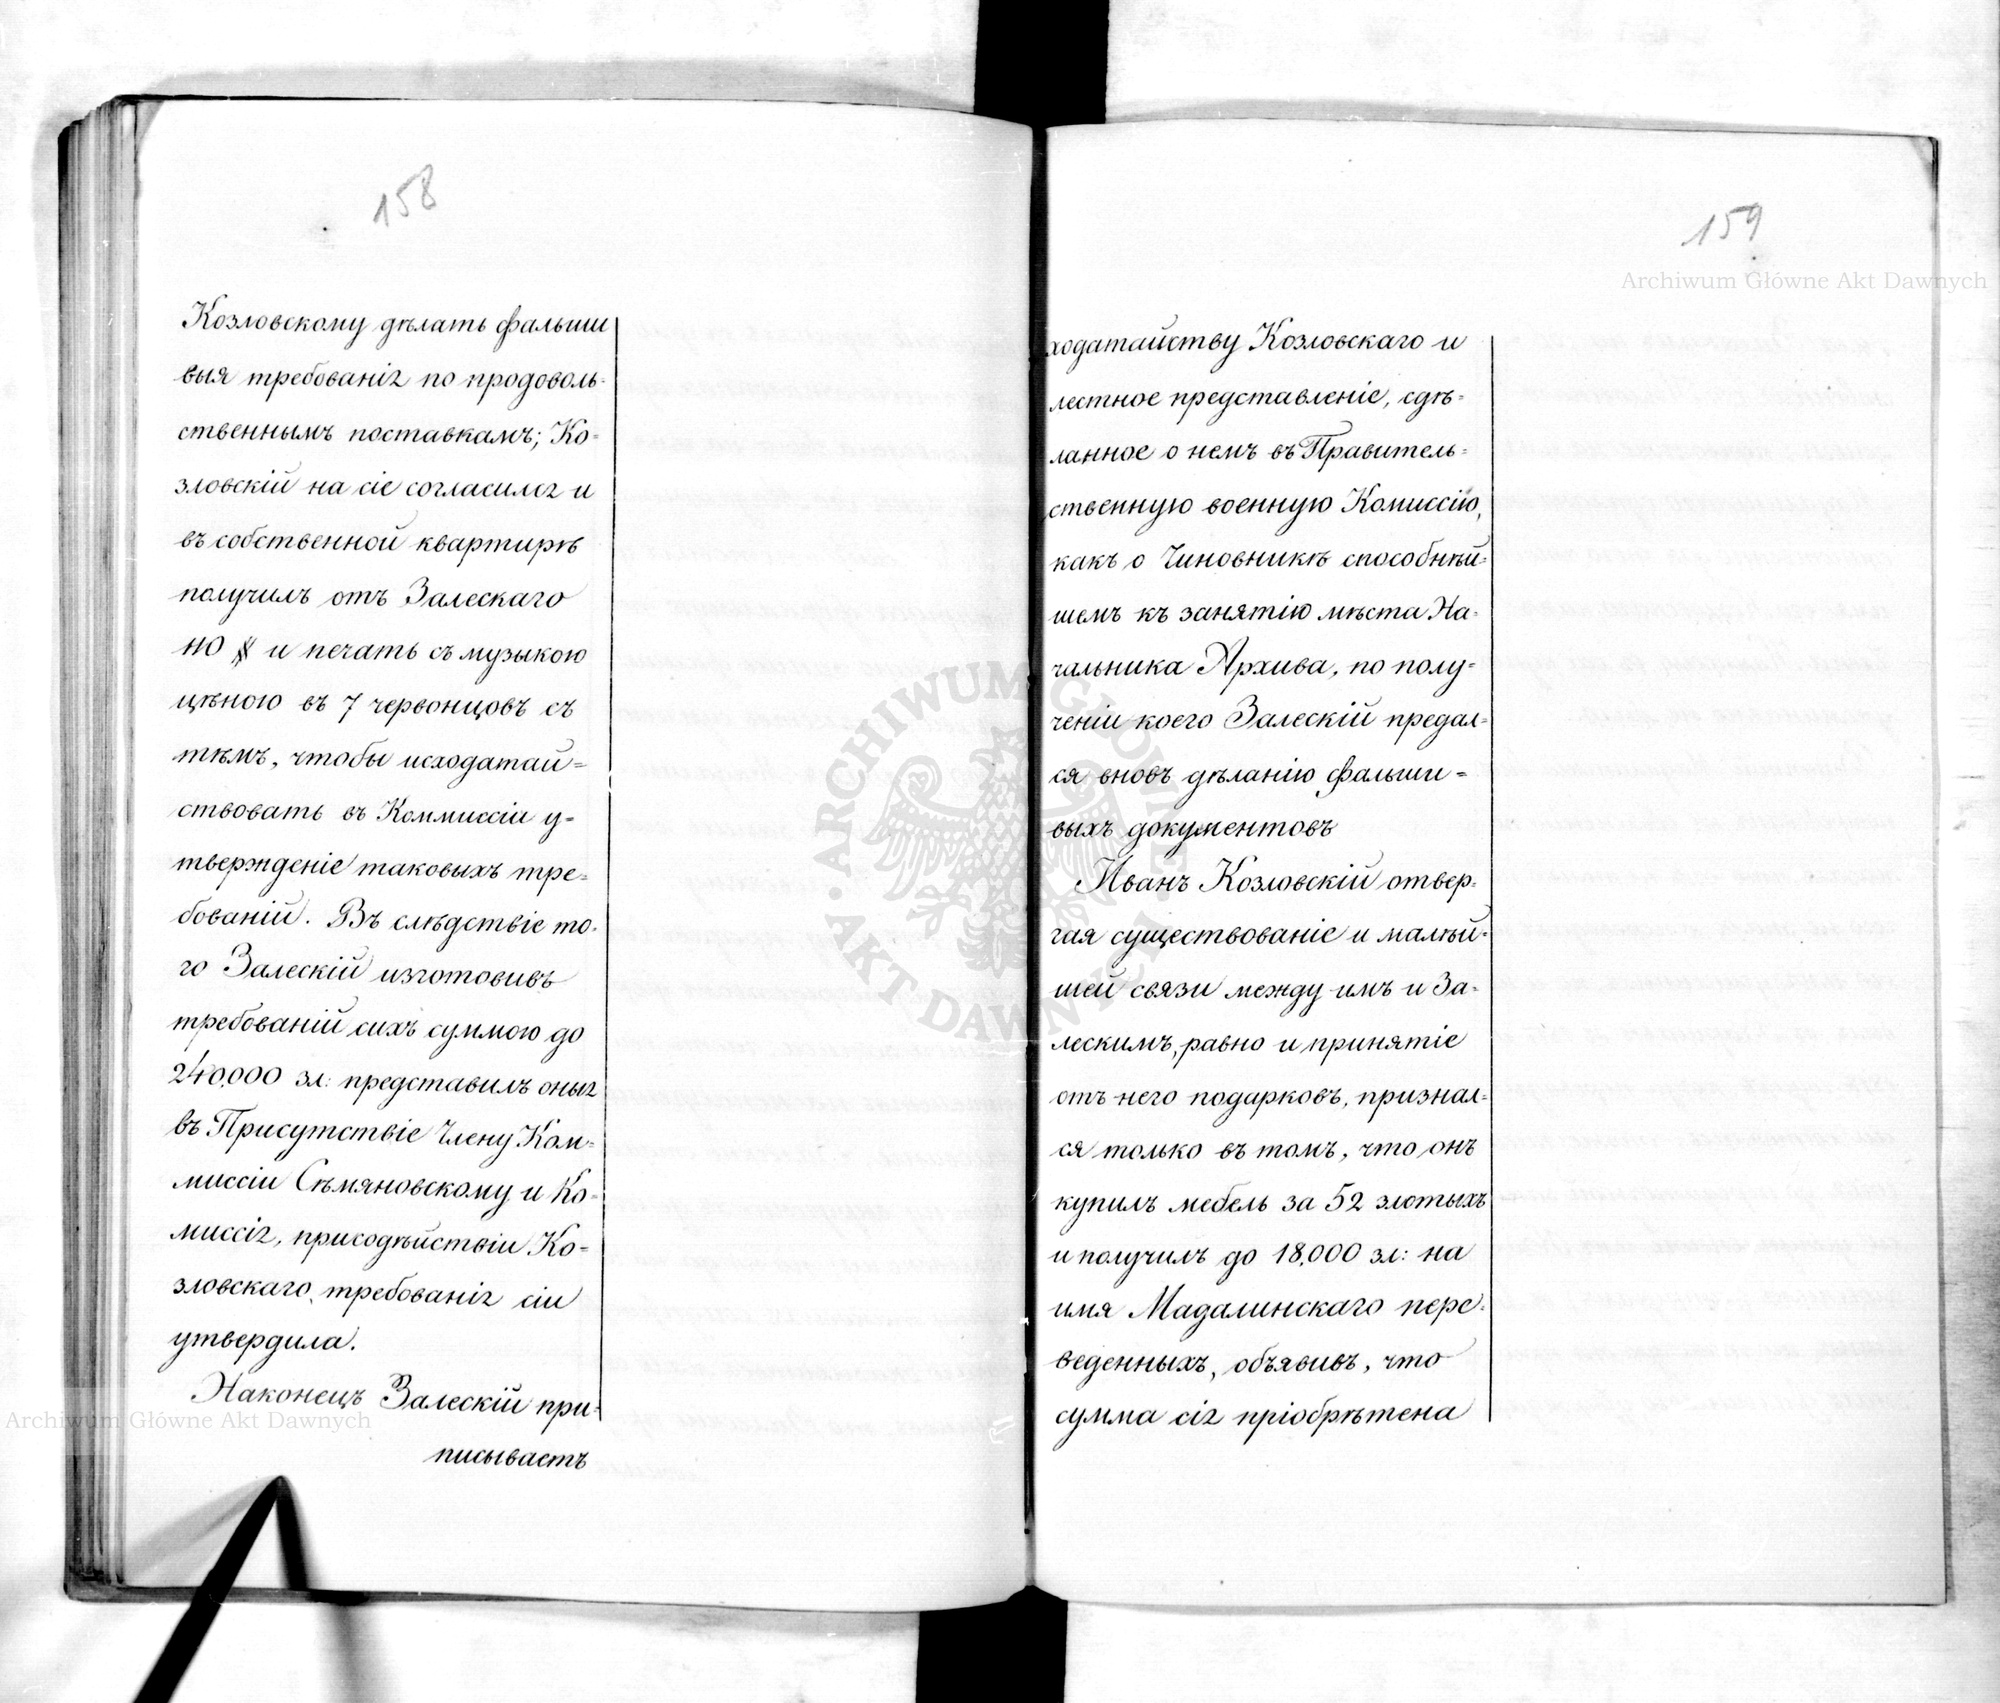 158
Козловскому дѣлать фальши
выя требованія по продоволь=
ственнымъ поставкамъ; Ко=
зловскій на сіе согласился и
въ собственной квартирѣ
получилъ отъ Залескаго
и печать съ музыкою
цѣною въ 7 червонцовъ съ
тѣмъ, чтобы исходатай=
ствовать въ Коммиссіи у=
твержденіе таковыхъ тре=
бованій. Въ слѣдствіе то=
го Залескій изготовивъ
требованій сихъ суммою до
240,000 зл: представилъ оныя
въ Присутствіе Члену Ком=
миссіи Сѣмяновскому и Ко=
миссія, присодѣйствіи Ко=
зловскаго, требованія сіи
утвердила.
Наконецъ Залескій при=
писываетъ
159
ходатайству Козловскаго и
лестное представленіе, сдѣ=
ланное о немъ въ Правитель=
ственную военную Комиссію,
какъ о Чиновникѣ способнѣй=
шемъ къ занятію мѣста На=
чальника Архива, по полу=
ченіи коего Залескій предал=
ся вновь дѣланію фальши=
выхъ документовъ
Иванъ Козловскій отвер=
гая существованіе и малѣй=
шей связи между имъ и За=
лескимъ, равно и принятіе
отъ него подарковъ, признал=
ся только въ томъ, что онъ
купилъ мебель за 52 злотыхъ
и получилъ до 18,000 зл: на
имя Мадалинскаго пере=
веденныхъ, объявивъ, что
сумма сія пріобрѣтена
Archiwum Główne Akt Dawnych
Archiwum Główne Akt Dawnych
ARCHIWUM GŁÓWNE AKT DAWNYCH